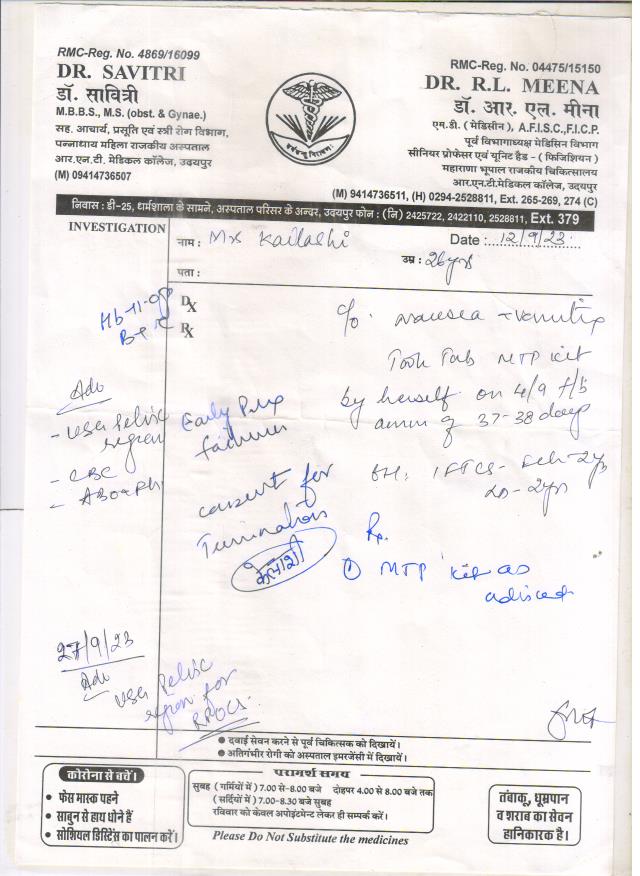 RMC-Reg. No. 4869/16099
DR. SAVITRI
डॉ. सावित्री
M.B.B.S., M.S. (obst. & Gynae.)
सह. आचार्य, प्रसूति एवं स्त्री रोग विभाग,
पन्नाधाय महिला राजकीय अस्पताल
आर.एन.टी. मेडिकल कॉलेज, उदयपुर
(M) 09414736507
RMC-Reg. No. 04475/15150
DR. R.L. MEENA
डॉ. आर. एल. मीना
एम.डी. ( मेडिसीन ), A.F.I.S.C.,F.I.C.P.
पूर्व विभागाध्यक्ष मेडिसिन विभाग
सीनियर प्रोफेसर एवं यूनिट हैड - ( फिजिशियन )
महाराणा भूपाल राजकीय चिकित्सालय
आर.एन.टी.मेडिकल कॉलेज, उदयपुर
(M) 9414736511, (H) 0294-2528811, Ext. 265-269, 274 (C)
निवास : डी-25, धर्मशाला के सामने, अस्पताल परिसर के अन्दर, उदयपुर फोन : (नि) 2425722, 2422110, 2528811, Ext. 379
INVESTIGATION
नाम : Mrs Kailashi
Date : 12/9/23
उम्र : 26yrs
पता :
Dx
Rx
Hb-11-
c/o. nausea + vomiting
Took Tab MTP Kit
by herself on 4/9 f/b
amm of 37-38 days
OH: 1 FTCS - Feh - 2yr
LD - 2yr
Adv
- USG Pelvic
region
- CBC
- ABO & Rh
Early Preg
failure
consent for
Termination
कैलाशी
Rp.
① MTP Kit as
advised
27/9/23
Adv
USG Pelvic
region for
RPOCS.
• दवाई सेवन करने से पूर्व चिकित्सक को दिखायें।
• अतिगंभीर रोगी को अस्पताल इमरजेंसी में दिखायें।
कोरोना से बचें।
• फेस मास्क पहने
• साबुन से हाथ धोने हैं
• सोशियल डिस्टिेंस का पालन करें।
परामर्श समय
सुबह ( गर्मियों में ) 7.00 से-8.00 बजे दोहपर 4.00 से 8.00 बजे तक
( सर्दियों में ) 7.00-8.30 बजे सुबह
रविवार को केवल अपोइंटमेन्ट लेकर ही सम्पर्क करें।
Please Do Not Substitute the medicines
तंबाकू, धूम्रपान
व शराब का सेवन
हानिकारक है।